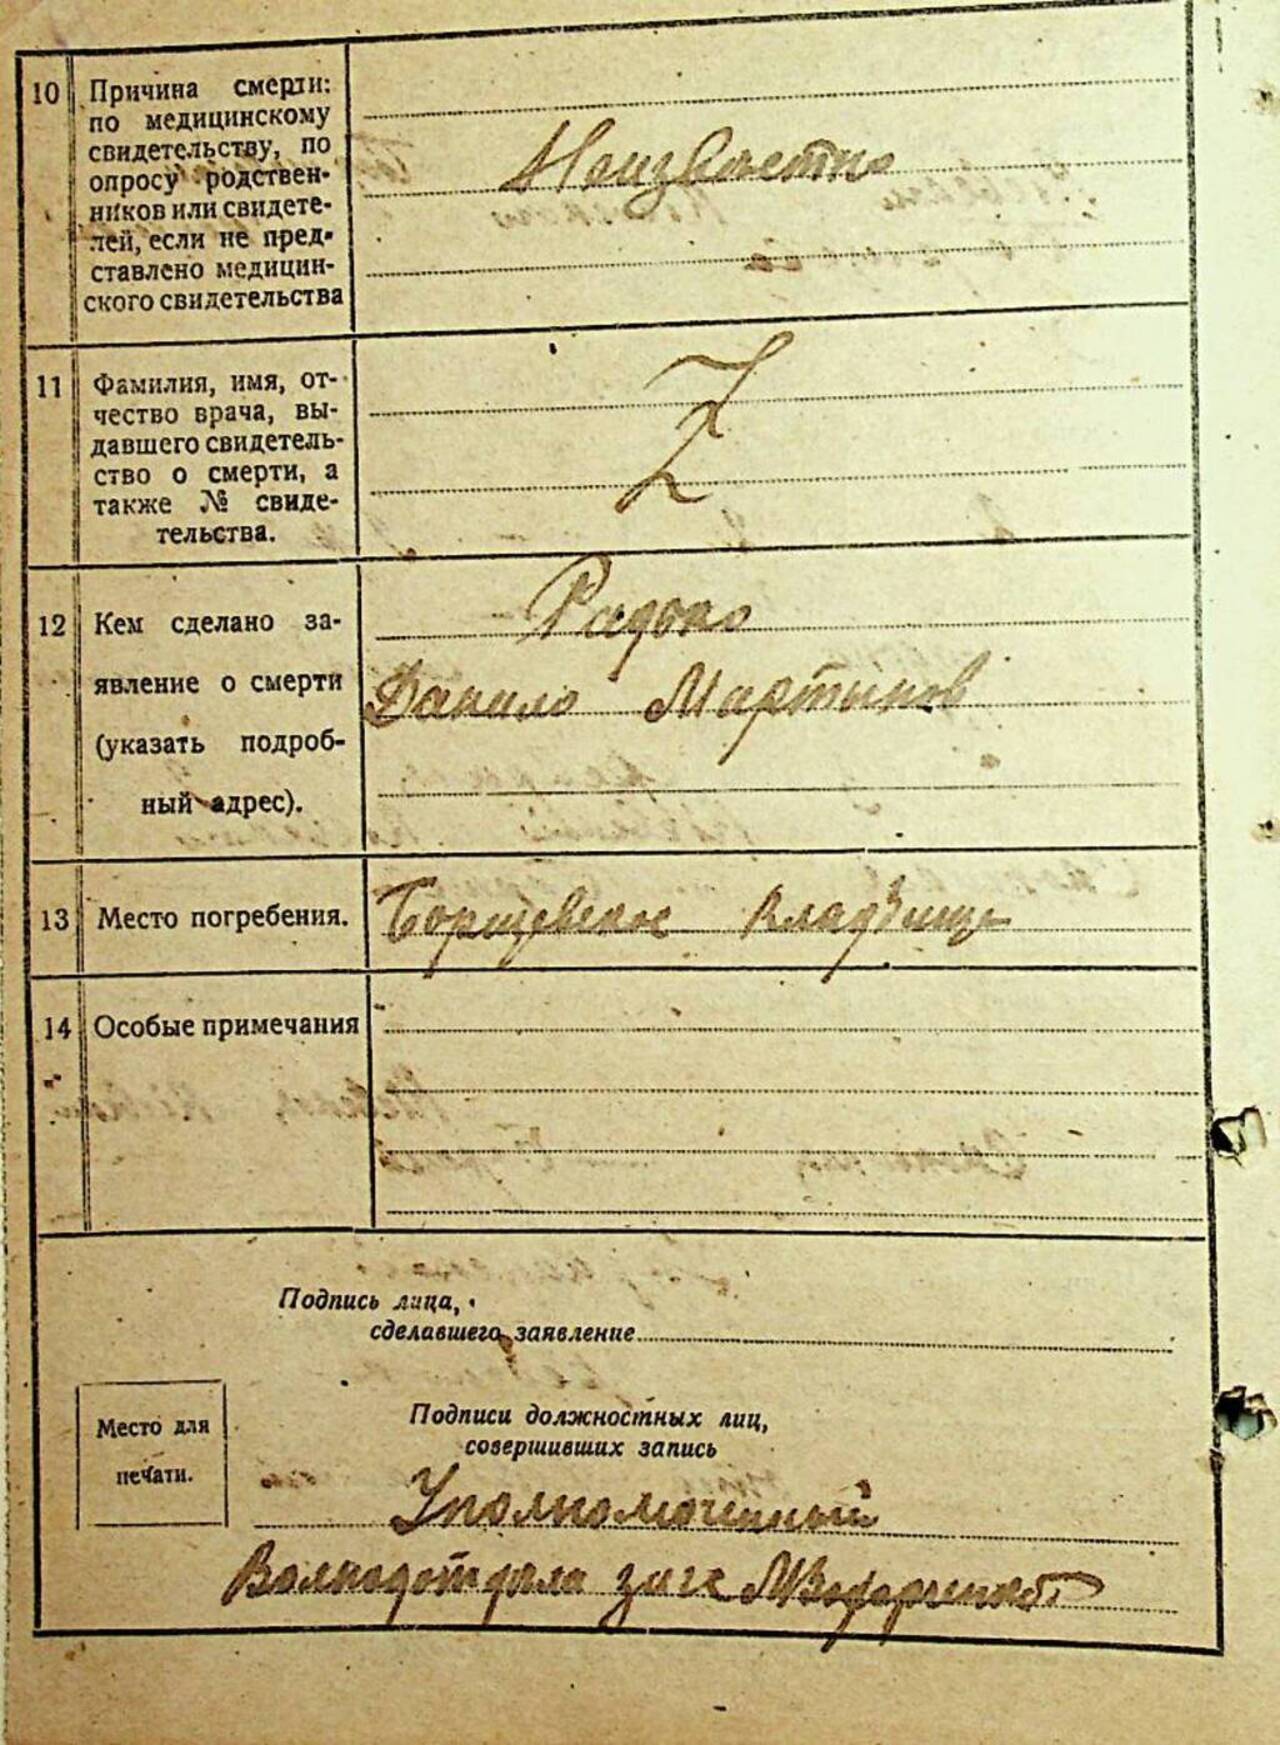 10 Причина смерти:
по медицинскому
свидетельству, по
опросу родствен-
ников или свидете-
лей, если не пред-
ставлено медицин-
ского свидетельства
Неизвестно
11 Фамилия, имя, от-
чество врача, вы-
давшего свидетель-
ство о смерти, а
также № свиде-
тельства.
Z
12 Кем сделано за-
явление о смерти
(указать подроб-
ный адрес).
Радько
Данило Мартынов
13 Место погребения.
Борщевское Кладбище
14 Особые примечания
Подпись лица,
сделавшего заявление
Место для
печати.
Подписи должностных лиц,
совершивших запись
Уполномоченный
загс